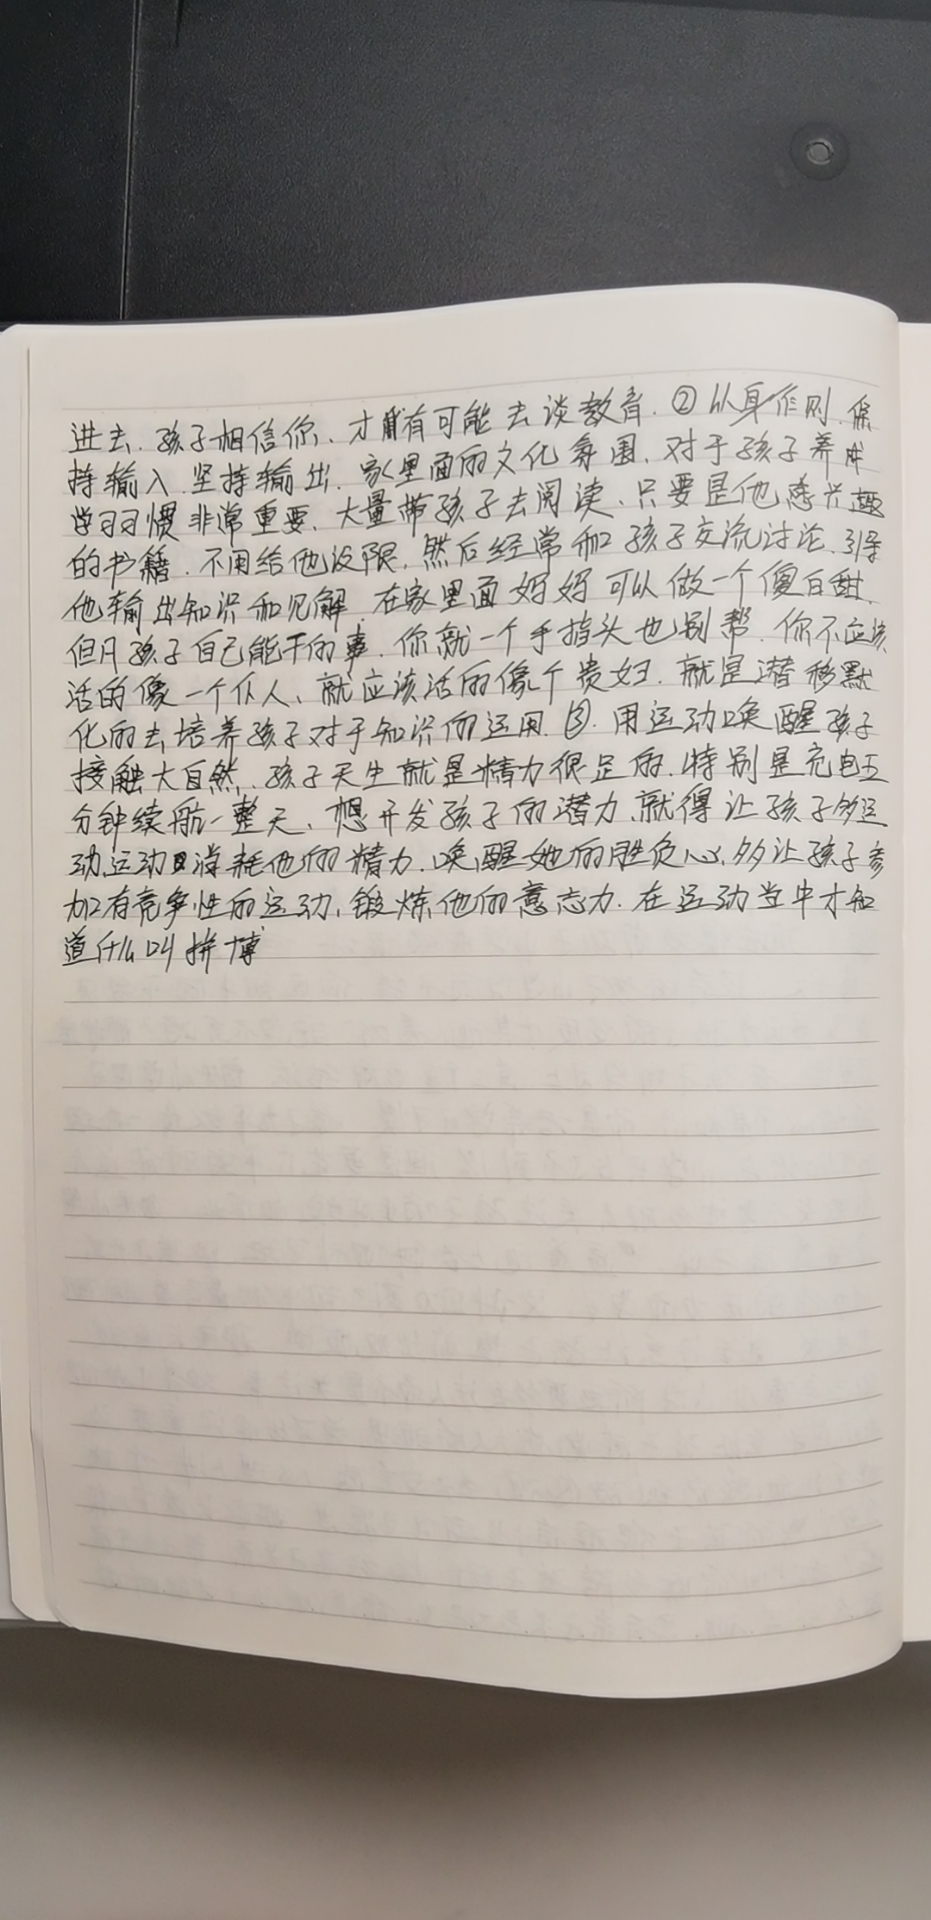 进去.孩子相信你.才有可能去谈教育.②以身作则.保
持输入.坚持输出.家里面的文化氛围.对于孩子养成
学习习惯非常重要.大量带孩子去阅读.只要是他感兴趣
的书籍.不用给他设限.然后经常和孩子交流讨论.引导
他输出知识和见解.在家里面妈妈可以做一个傻白甜.
但凡孩子自己能干的事.你就一个手指头也别帮.你不应该
活的像一个仆人.就应该活的像个贵妇.就是潜移默
化的去培养孩子对于知识的运用.③.用运动唤醒孩子
接触大自然.孩子天生就是精力很足的.特别是充电五
分钟续航一整天.想开发孩子的潜力.就得让孩子多运
动.运动消耗他的精力.唤醒她的胜负心.多让孩子参
加有竞争性的运动.锻炼他的意志力.在运动当中才知
道什么叫拼博